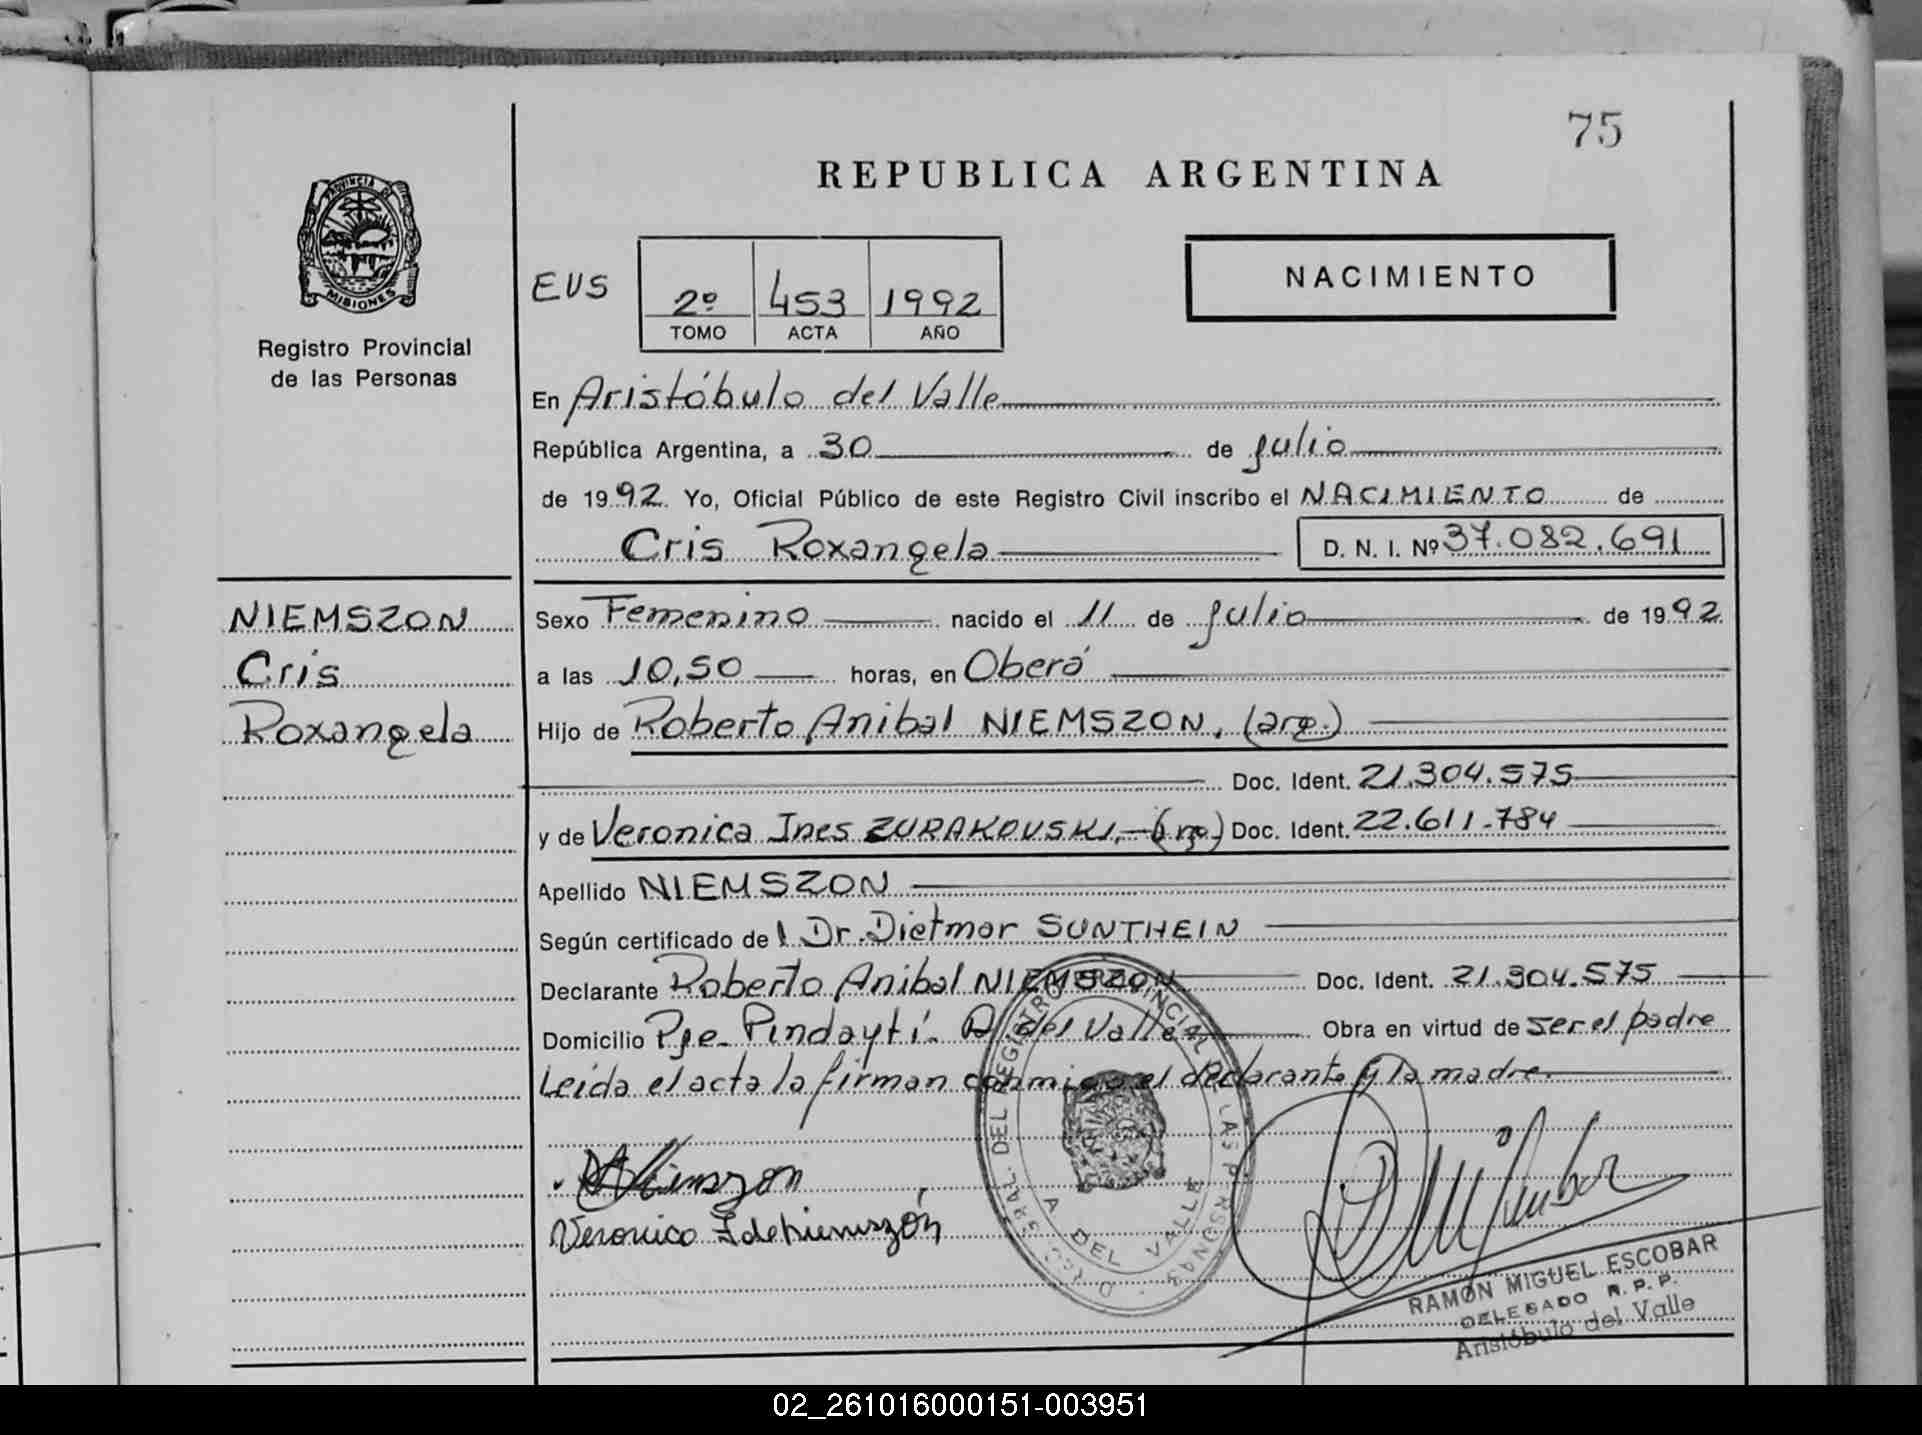 75
REPUBLICA ARGENTINA
PROVINCIA DE
MISIONES
Registro Provincial
de las Personas
EUS
2º 453 1992
TOMO ACTA AÑO
NACIMIENTO
En Aristóbulo del Valle
República Argentina, a 30 de julio
de 1992. Yo, Oficial Público de este Registro Civil inscribo el NACIMIENTO de
Cris Roxangela D. N. I. Nº 37.082.691
NIEMSZON
Cris
Roxangela
Sexo Femenino nacido el 11 de julio de 1992.
a las 10,50 horas, en Oberá
Hijo de Roberto Anibal NIEMSZON, (arg.)
Doc. Ident. 21.304.575
y de Veronica Ines ZURAKOUSKI, (arg.) Doc. Ident. 22.611.784
Apellido NIEMSZON
Según certificado del Dr. Dietmar SUNTHEIN
Declarante Roberto Anibal NIEMSZON Doc. Ident. 21.304.575
Domicilio Pje. Pindaytí. A. del Valle Obra en virtud de ser el padre
Leída el acta la firman conmigo el declarante y la madre.
Niemszon
Veronica I de Niemszón
REGISTRO PROVINCIAL DE LAS PERSONAS
A DEL VALLE
RAMON MIGUEL ESCOBAR
DELEGADO R. P. P.
Aristóbulo del Valle
02_261016000151-003951